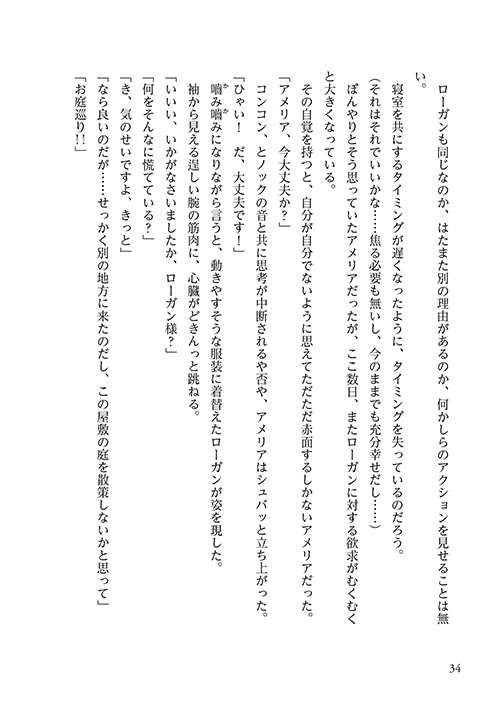 ローガンも同じなのか、はたまた別の理由があるのか、何かしらのアクションを見せることは無
い。
寝室を共にするタイミングが遅くなったように、タイミングを失っているのだろう。
(それはそれでいいかな……焦る必要も無いし、今のままでも充分幸せだし……)
ぼんやりとそう思っていたアメリアだったが、ここ数日、またローガンに対する欲求がむくむく
と大きくなっている。
その自覚を持つと、自分が自分でないように思えてただただ赤面するしかないアメリアだった。
「アメリア、今大丈夫か?」
コンコン、とノックの音と共に思考が中断されるや否や、アメリアはシュバッと立ち上がった。
「ひゃい! だ、大丈夫です!」
噛み噛みになりながら言うと、動きやすそうな服装に着替えたローガンが姿を現した。
袖から見える逞しい腕の筋肉に、心臓がどきんっと跳ねる。
「いいい、いかがなさいましたか、ローガン様?」
「何をそんなに慌てている?」
「き、気のせいですよ、きっと」
「なら良いのだが……せっかく別の地方に来たのだし、この屋敷の庭を散策しないかと思って」
「お庭巡り!!」
34